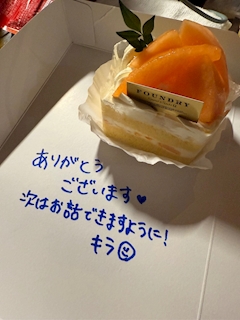 FOUNDRY
ありがとう
ございます♥
次はお話できますように!
キラ☺